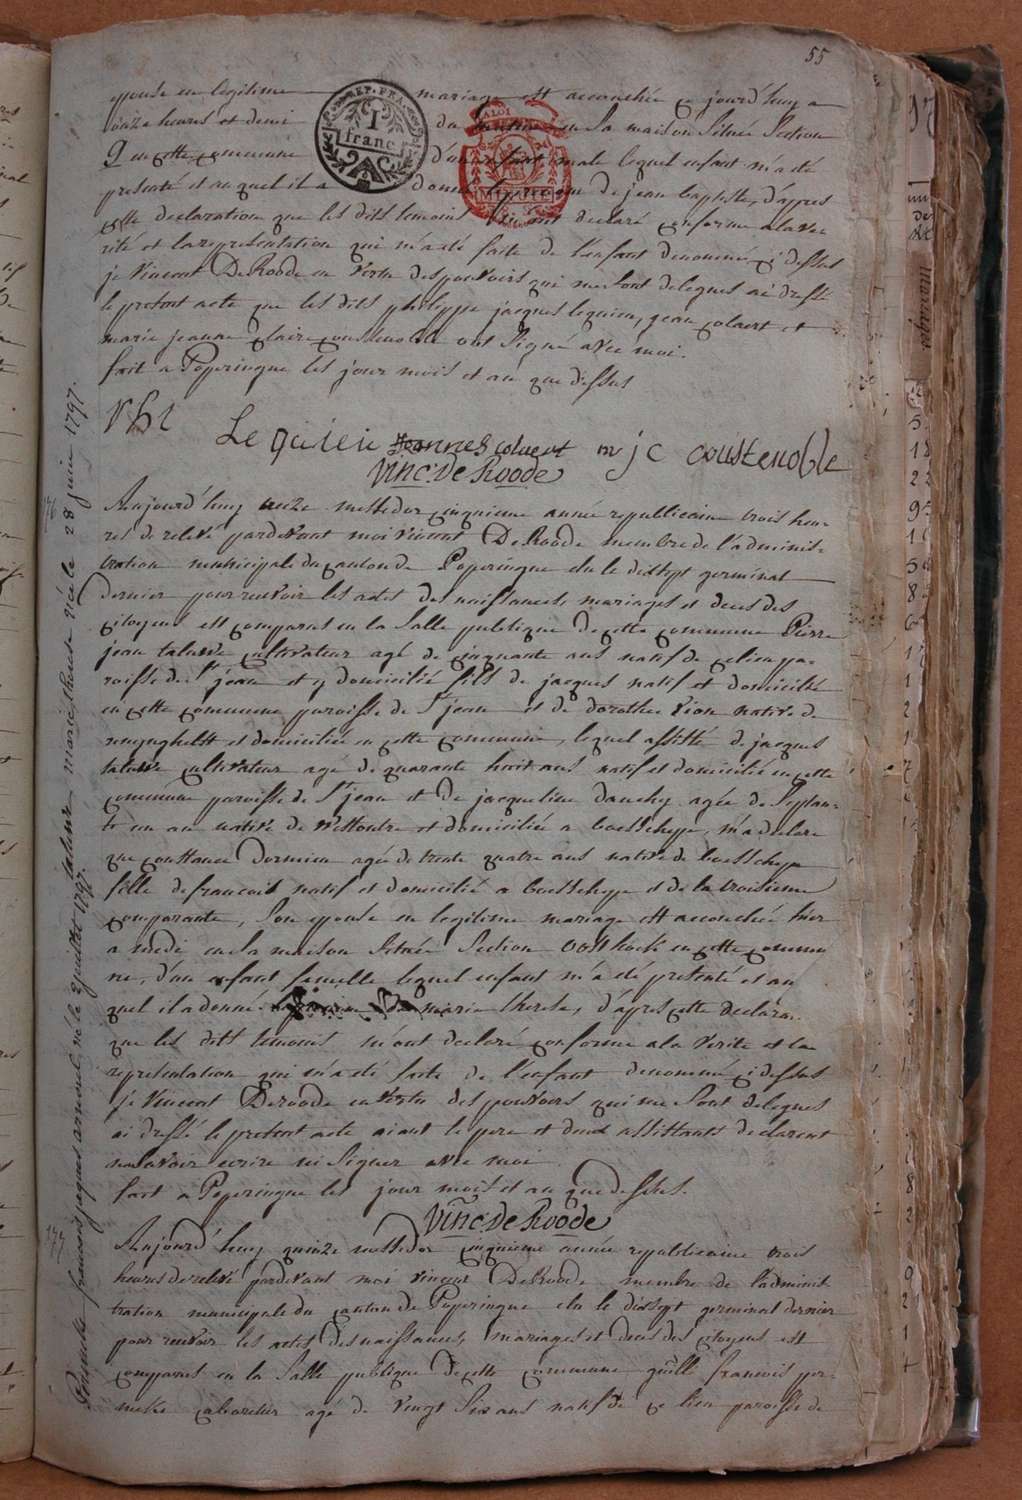 55
epouse en legitime mariage est accouchée ce jourd'huy a
onze heures et demi du en sa maison située Section
Q en cette commune d'un enfant male lequel enfant m'a eté
presenté et auquel il a donné le prenom de jean baptiste, d'apres
cette declaration que les dits temoins m'ont declaré conforme a la ve
rité et la representation qui m'a eté faite de l'enfant denommé ci dessus
je Vincent DeRoode en vertu des pouvoirs qui me sont delegués ai dressé
le present acte que les dits philippe jacques lequien, jean colaert et
marie jeanne claire coustenoble ont signé avec moi.
fait a Poperingue les jour mois et an que dessus
Le quieu Joannes colaert m j c coustenoble
Vinc. De Roode
REP. FRA
1 franc
176
Aujourd'huy onze messidor cinquieme année republicaine trois heu-
res de relevé pardevant moi Vincent DeRoode membre de l'adminis-
tration municipale du canton de Poperingue elu le dissept germinal
dernier pour recevoir les actes de naissances, mariages et deces des
citoyens est comparut en la Salle publique de cette commune Pierre
jean talavre cultivateur agé de cinquante ans natif de ce lieu pa-
roisse de St jean et y domicilié fils de jacques natif et domicilié
en cette commune paroisse de St jean et de dorothée vion native de
et domiciliée en cette commune, lequel assisté de jacques
talavre cultivateur agé de quarante huit ans natif et domicilié en cette
commune paroisse de St jean et de jacqueline dauchy agée de Septan-
te un an native de westoutre et domiciliée a boesschepe, m'a declaré
que constance Dormieu agée de trente quatre ans native de boesschepe
fille de francois natif et domicilié a boesschepe et de la troisieme
comparante, son epouse en legitime mariage est accouchée hier
a midi en sa maison située Section en cette commu
ne, d'un enfant femelle lequel enfant m'a eté presenté et au
quel il a donné marie therese, d'apres cette declara.
que les dits temoins m'ont declaré conforme a la verité et la
representation qui m'a eté faite de l'enfant denommé ci dessus
je Vincent Deroode en vertu des pouvoirs qui me sont delegués
ai dressé le present acte aiant le pere et deux assistants declarent
ne savoir ecrire ni signer avec moi
fait a Poperingue les jour mois et an que dessus.
Vinc. De Roode
177
Aujourd'huy quinze messidor cinquieme année republicaine trois
heures de relevé pardevant moi vincent DeRoode membre de l'adminis
tration municipale du canton de Poperingue elu le dissept germinal dernier
pour recevoir les actes des naissances, mariages et deces des citoyens est
comparut en la Salle publique de cette commune guill francois
cabaretier agé de vingt Six ans natif de ce lieu paroisse de
talavre marie therese née le 28 juin 1797.
francois jacques arnoud, né le 2 juillet 1797.